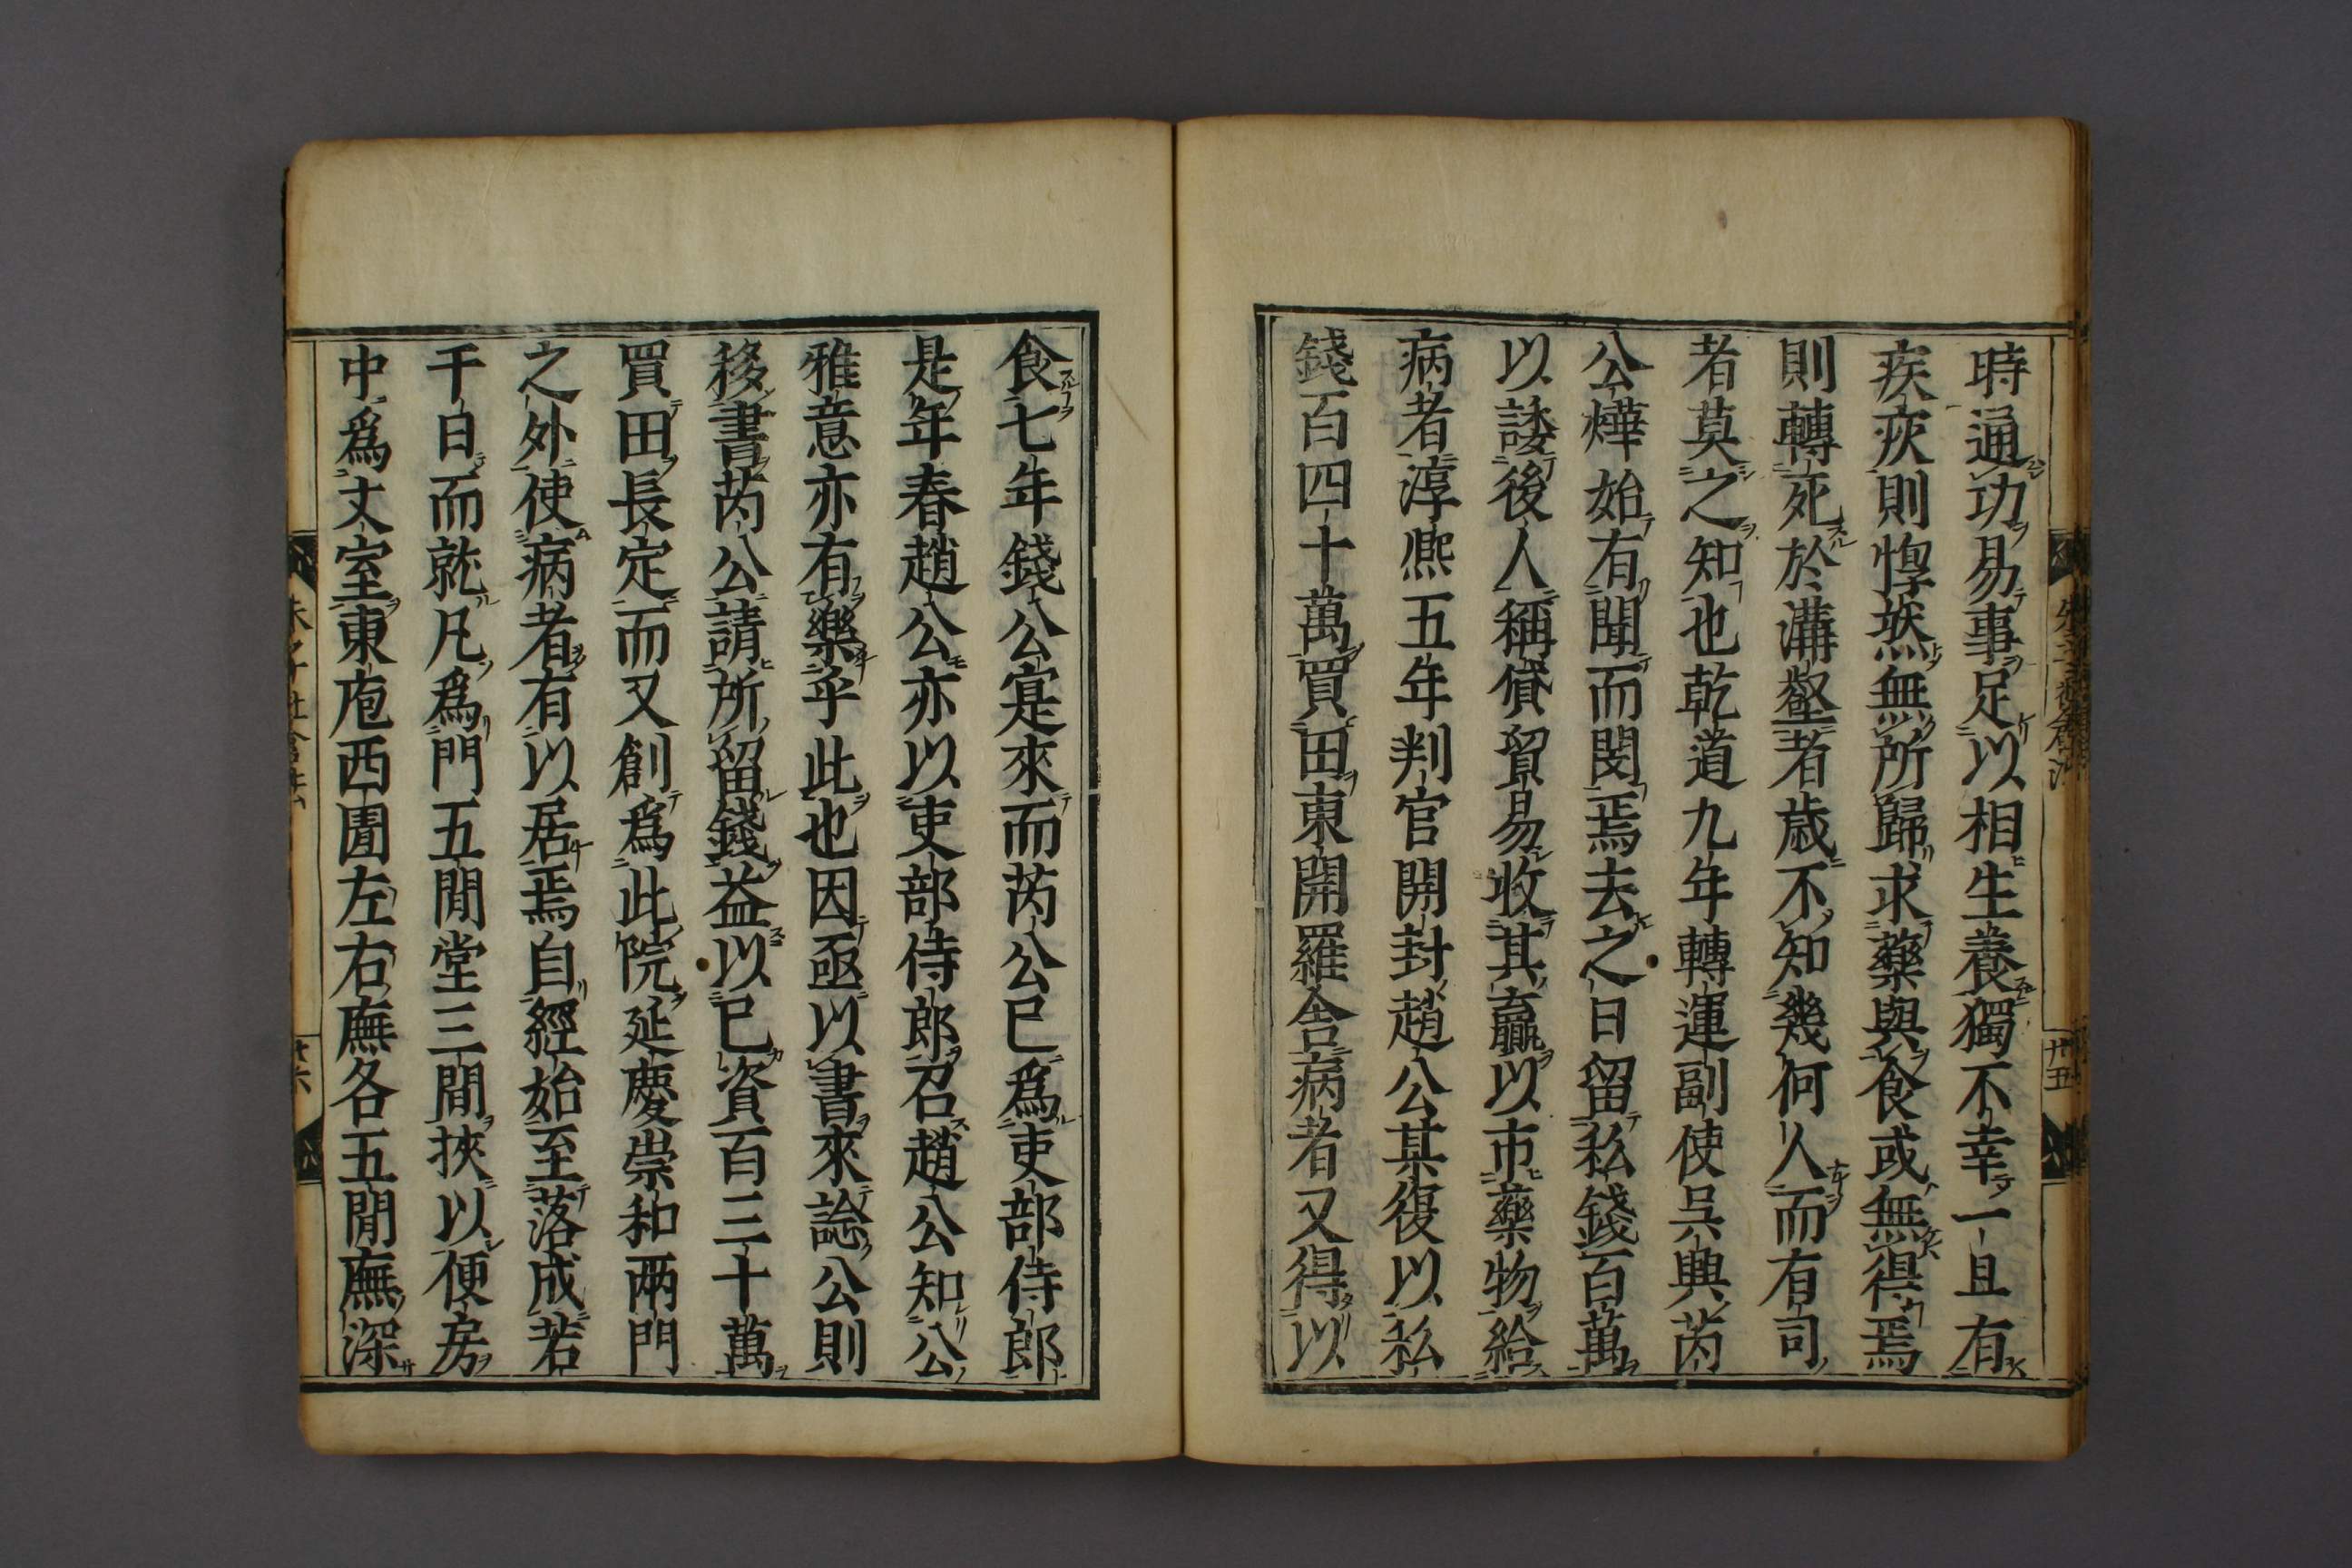 時通功易事足以相生養獨不幸一旦有
疾疢則惸然無所歸求藥與食或無得焉
則轉死於溝壑者歲不知幾何人而有司
者莫之知也乾道九年轉運副使吳興芮
公燁始有聞而閔焉去之日留私錢百萬
以諉後人稱貸貿易收其贏以市藥物給
病者淳熙五年判官開封趙公某復以私
錢百四十萬買田東關羅舍病者又得以
食七年錢公寔來而芮公已爲吏部侍郎
是年春趙公亦以吏部侍郎召趙公知公
雅意亦有樂乎此也因亟以書來諗公則
移書芮公請所留錢益以已資百三十萬
買田長定而又創爲此院延慶崇和兩門
之外使病者有以居焉自經始至落成若
干日而就凡爲門五間堂三間挾以便房
中爲丈室東庖西圊左右廡各五間廡深
朱子社倉法
廿五
朱子社倉法
廿六